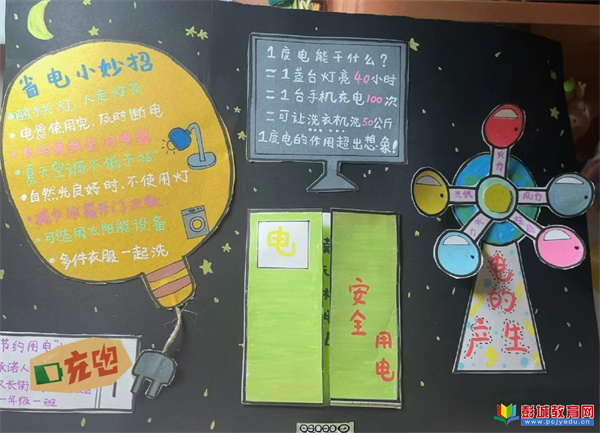 省电小妙招
随手关灯,人走灯灭
电器使用完,及时断电
夏天空调不低于26°
自然光良好时,不使用灯
减少冰箱开门次数
可选用太阳能设备
多件衣服一起洗
1度电能干什么?
=1盏台灯亮40小时
=1台手机充电100次
=可让洗衣机洗50公斤
1度电的作用超出想象!
火力
光伏
风力
水力
电的
产生
电
安全
用电
节约用电
充跑
一年级一班
彭城教育网
www.pcjyedu.cn